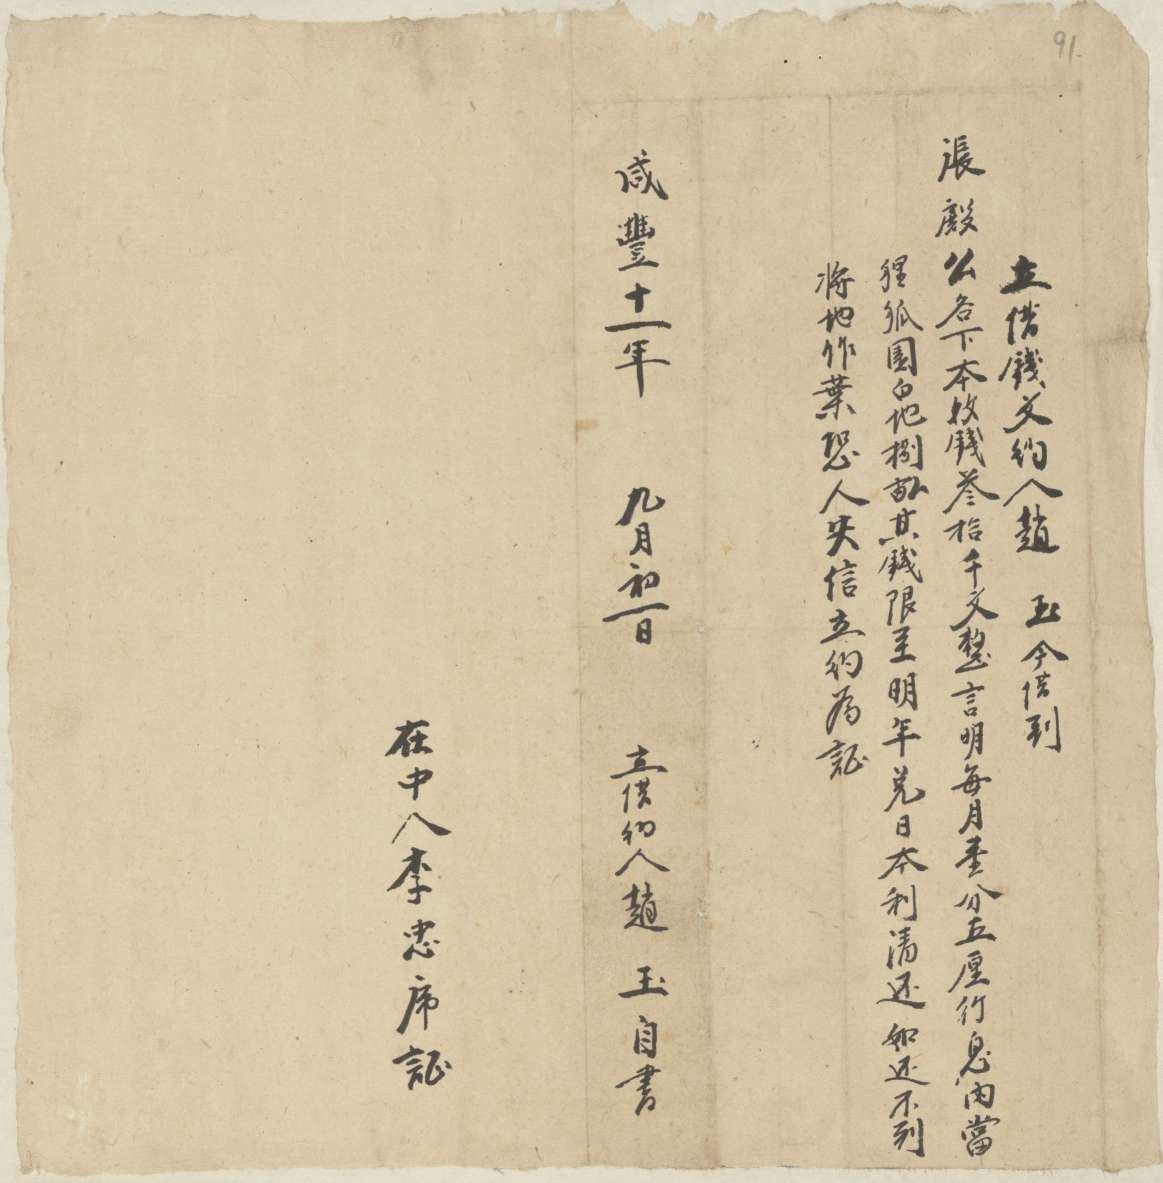 91
立借錢文約人趙 玉今借到
張殿公名下本收錢叁拾千文整言明每月壹分五厘行息内當
狸狐圈白地捌畝其錢限至明年兑日本利清还如还不到
将地作葉恐人失信立約為証
咸豐十一年 九月初一日 立借約人趙 玉自書
在中人李忠席証